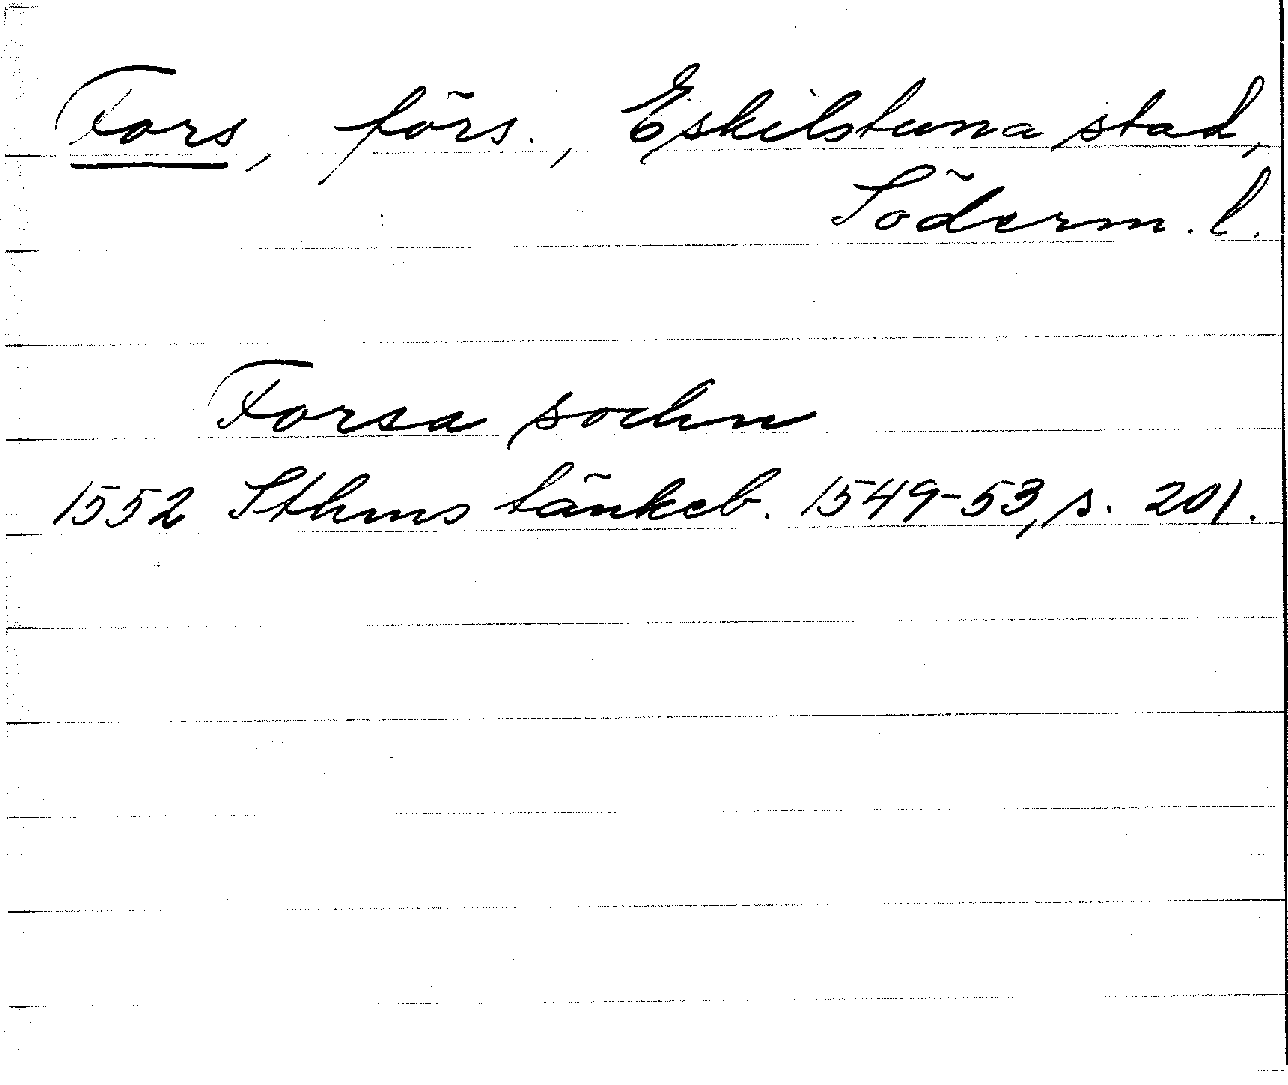 Fors, förs., Eskilstuna stad,
Söderm. l.
Forsa sochn
1552 Sthms tänkeb. 1549-53, s. 201.